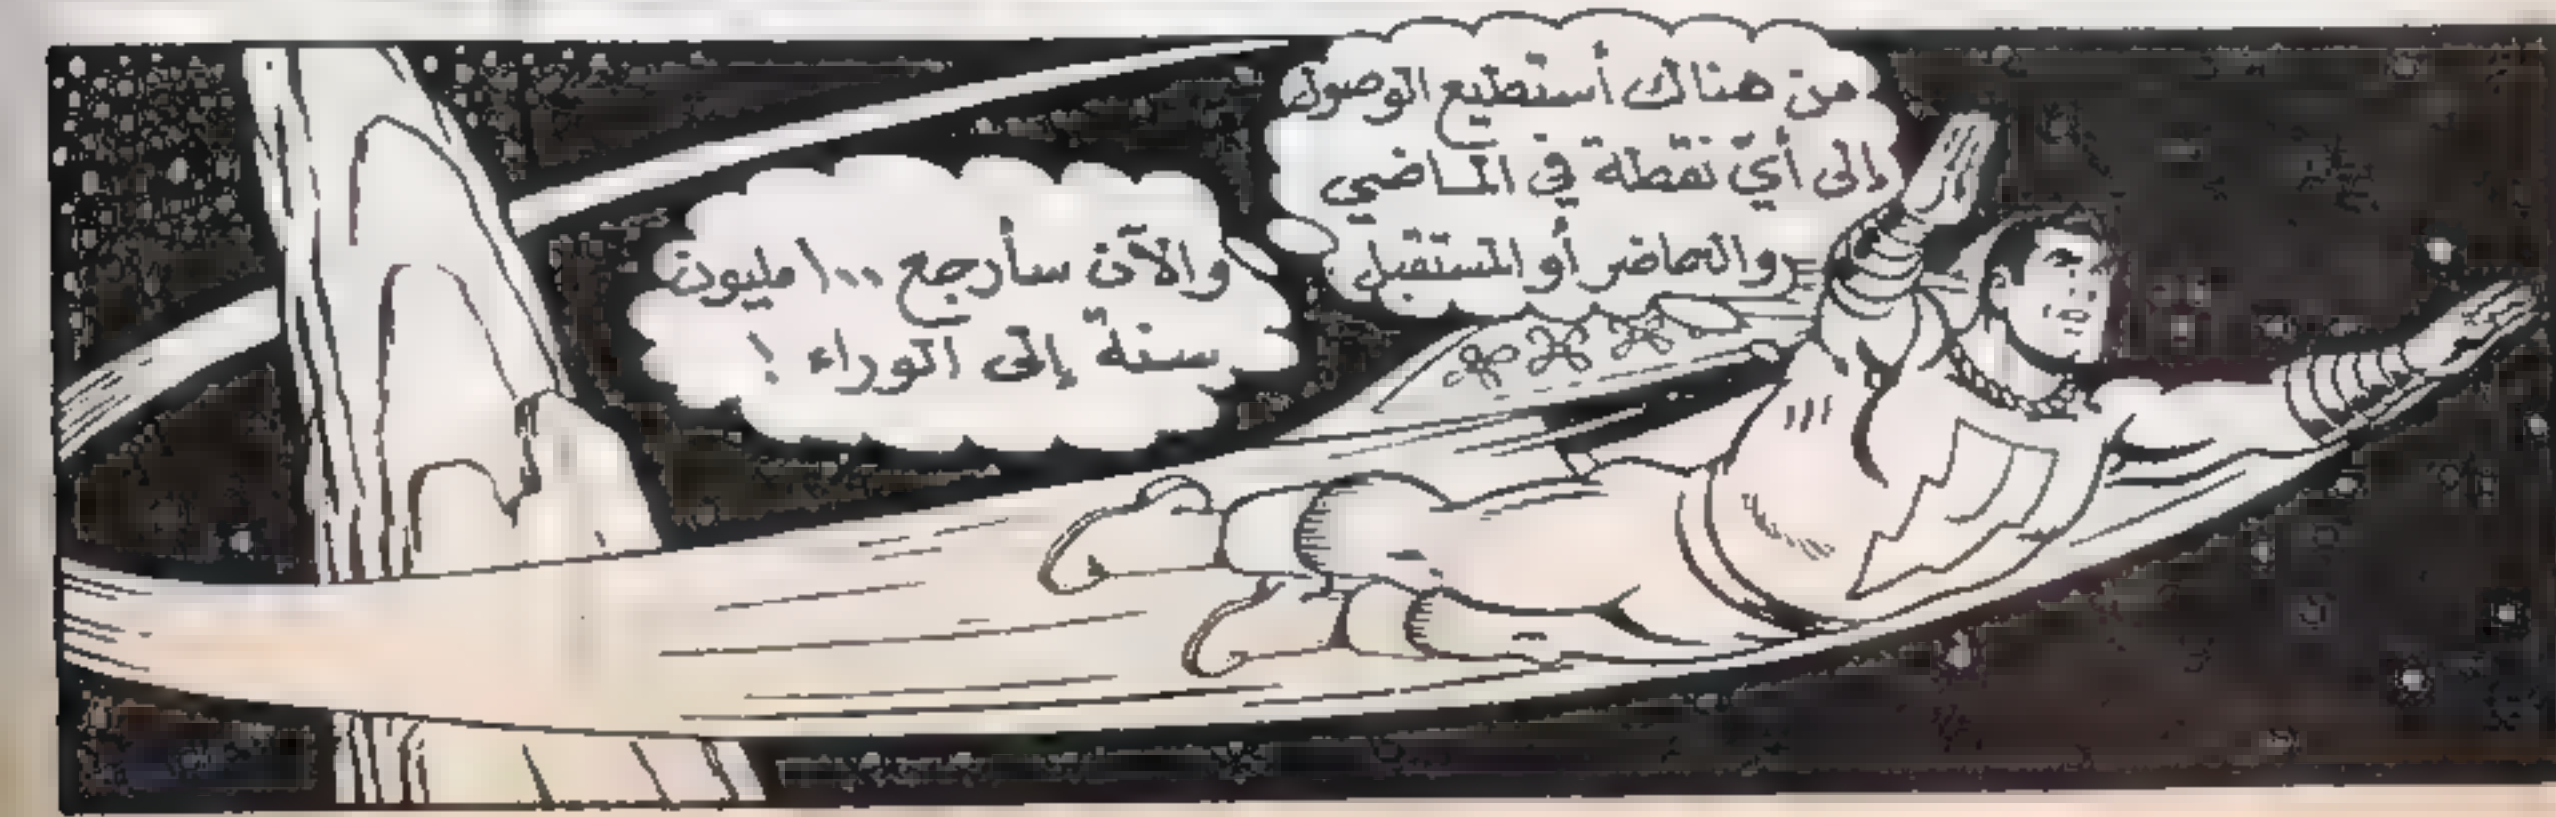 من هناك أستطيع الوصول
إلى أيّ نقطة في الماضي
والحاضر أو المستقبل
والآن سأرجع ١٠٠ مليون
سنة إلى الوراء !